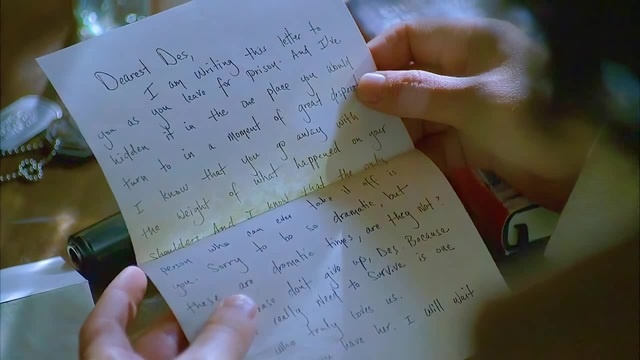 Dearest Des,
I am writing this letter to
you as you leave for prison. And I've
hidden it in the one place you would
turn to in a moment of great
I know that you go away with
the weight of what happened on your
shoulders And I know that the only
person who can ever take it off is
you. Sorry to be so dramatic, but
these are dramatic times, are they not?
don't give up, Des. Because
really need to survive is one
who truly loves us.
have her. I will wait